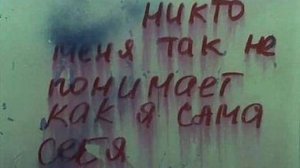 никто
меня так не
понимает
как я сама
себя